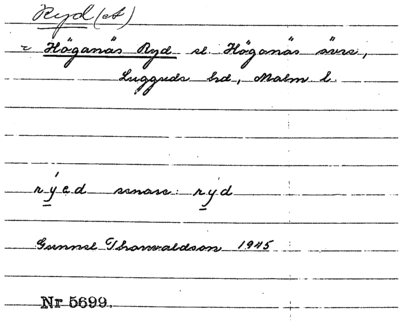 Ryd (et)
~ Höganäs Ryd sl Höganäs övre,
Luggude hd, Malm l.
rýed senare: rýd
Gunnel Thorvaldson 1945
Nr 5699.